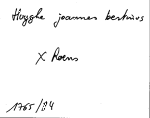 Huyghe joannes bertinus
X Roens
1765/84